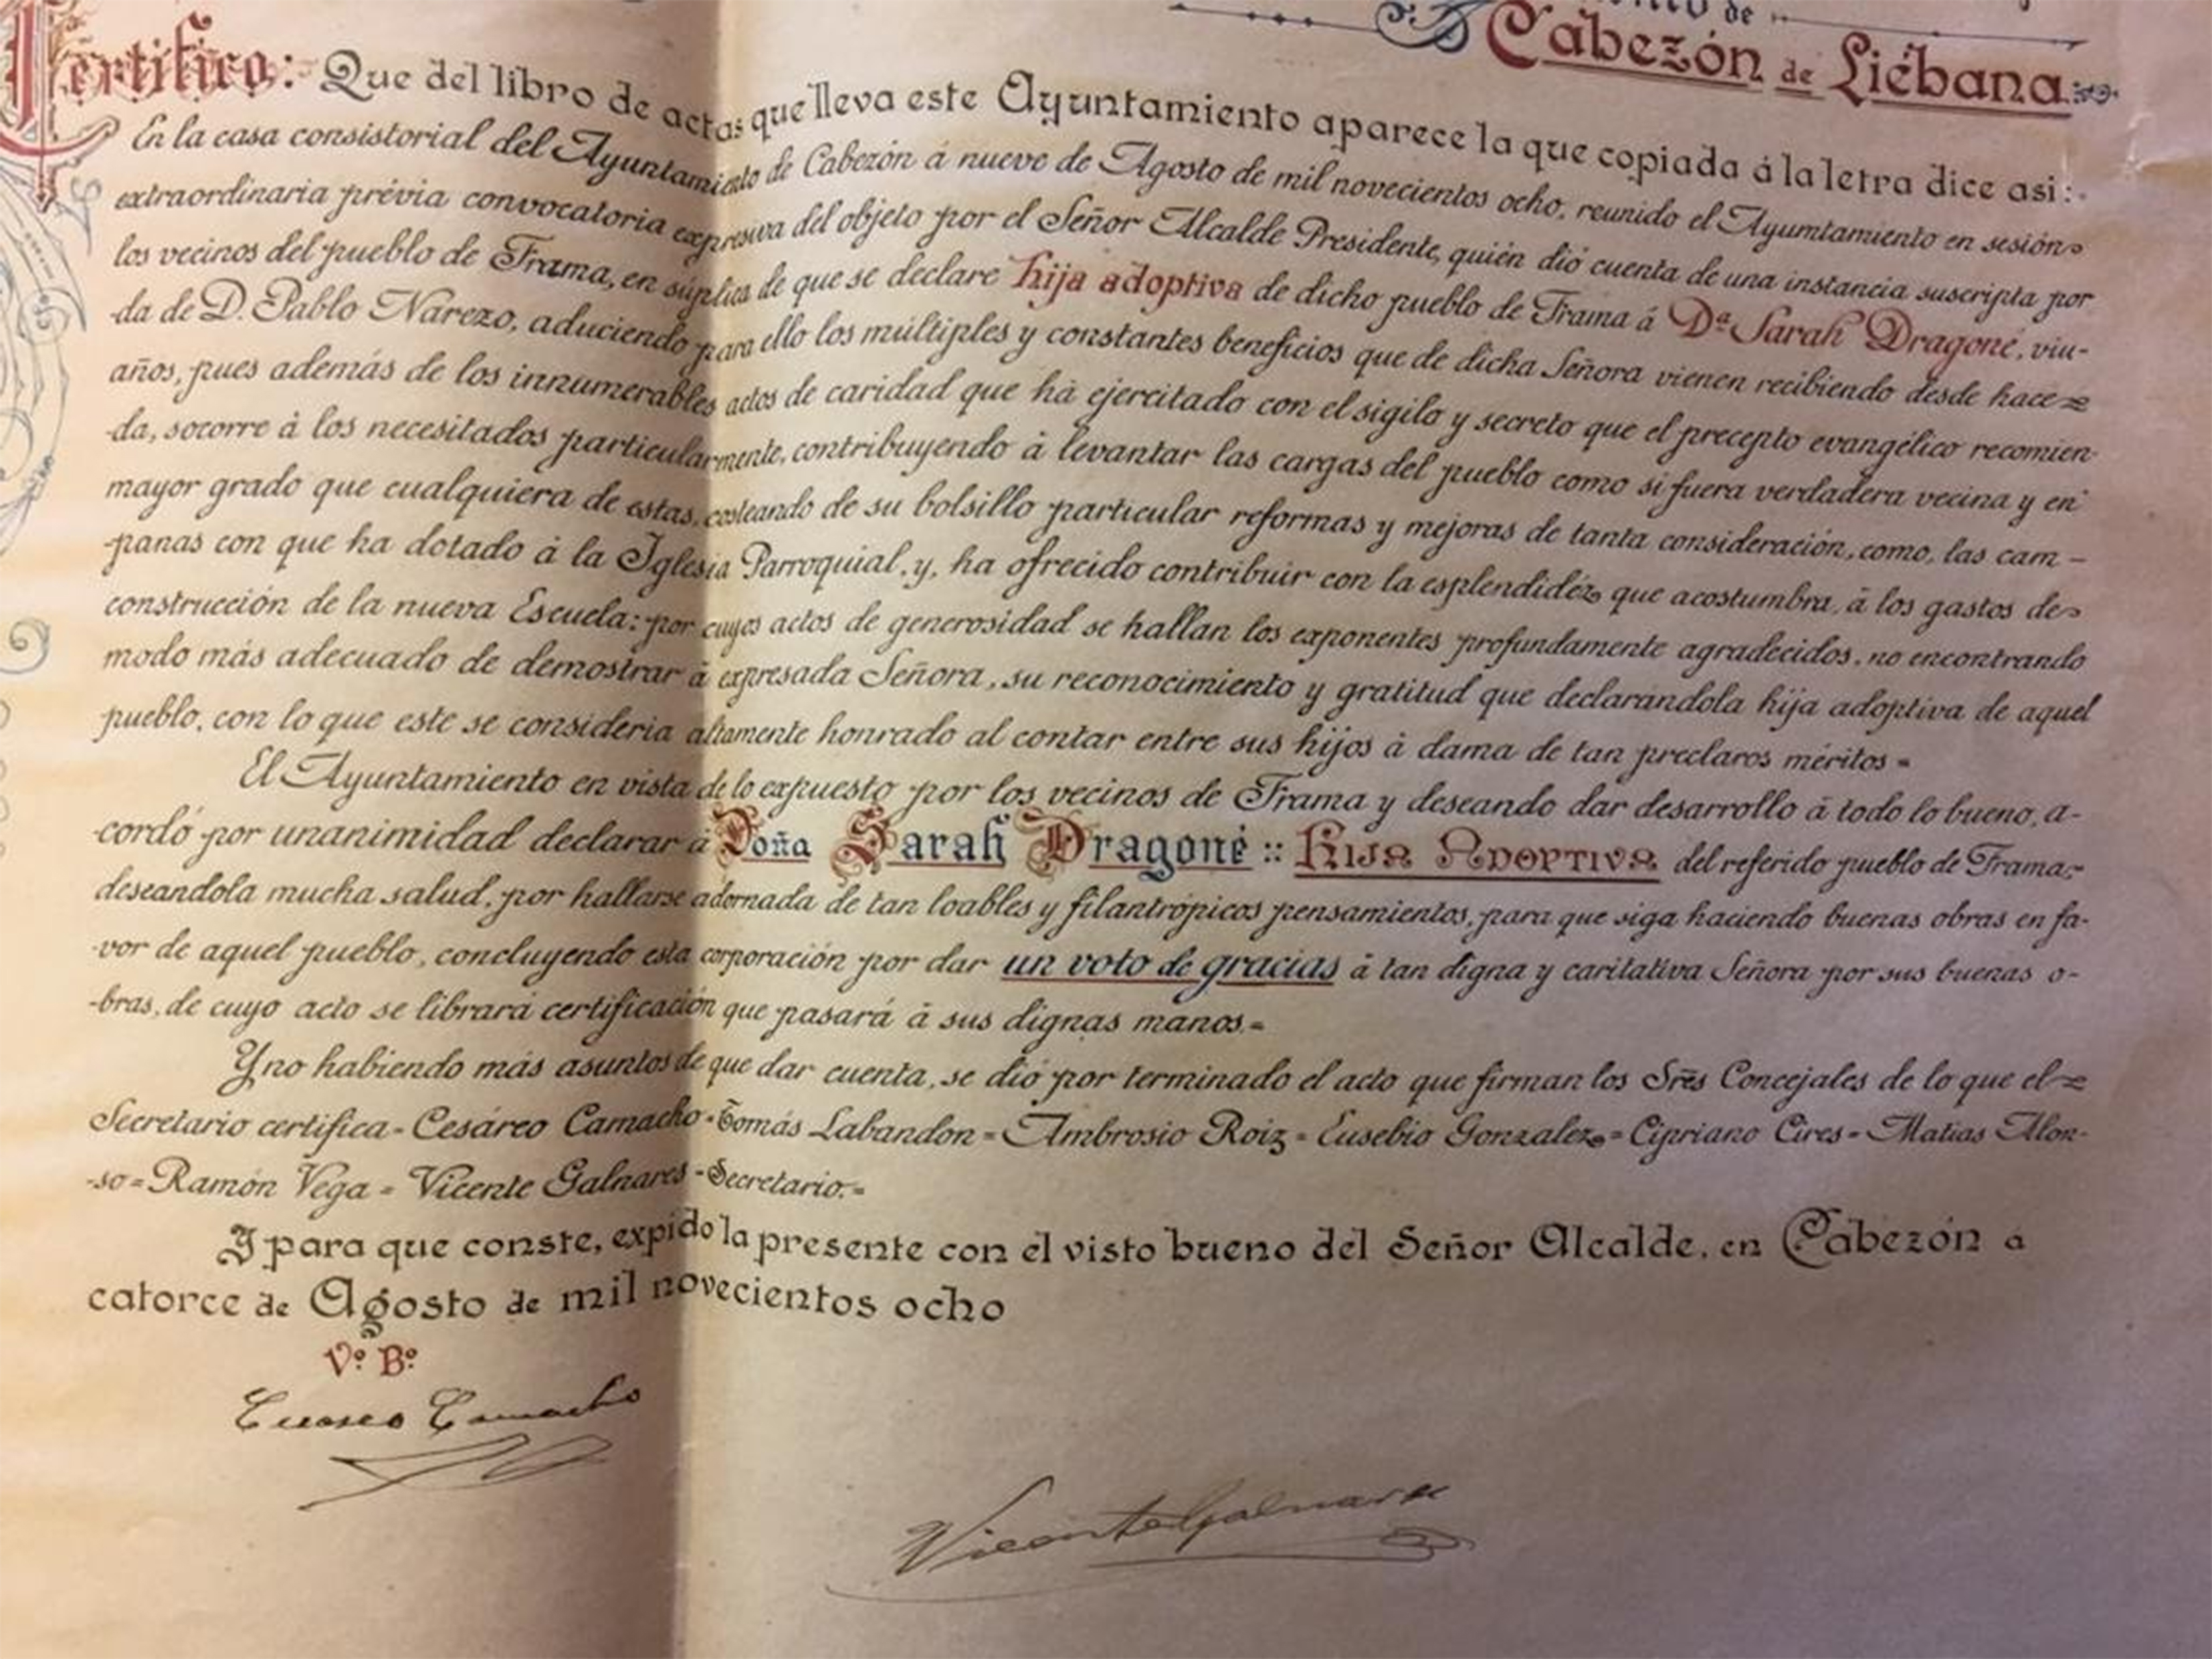 de
Cabezón de Liébana
Certifico: Que del libro de actas que lleva este Ayuntamiento aparece la que copiada á la letra dice asi:
En la casa consistorial del Ayuntamiento de Cabezón á nueve de Agosto de mil novecientos ocho, reunido el Ayumtamiento en sesión
extraordinaria prévia convocatoria expresiva del objeto por el Señor Alcalde Presidente, quién dió cuenta de una instancia suscripta por
los vecinos del pueblo de Frama, en súplica de que se declare hija adoptiva de dicho pueblo de Frama á Dª Sarah Dragoné, viu-
-da de D. Pablo Narezo, aduciendo para ello los múltiples y constantes beneficios que de dicha Señora vienen recibiendo desde hace=
años, pues además de los innumerables actos de caridad que há ejercitado con el sigilo y secreto que el precepto evangélico recomien-
-da, socorre á los necesitados particularmente, contribuyendo á levantar las cargas del pueblo como si fuera verdadera vecina y en
mayor grado que cualquiera de estas, costeando de su bolsillo particular reformas y mejoras de tanta consideración, como, las cam-
-panas con que ha dotado á la Iglesia Parroquial, y, ha ofrecido contribuir con la esplendidéz que acostumbra, á los gastos de
construcción de la nueva Escuela: por cuyos actos de generosidad se hallan los exponentes profundamente agradecidos, no encontrando
modo más adecuado de demostrar á expresada Señora, su reconocimiento y gratitud que declarándola hija adoptiva de aquel
pueblo, con lo que este se consideria altamente honrado al contar entre sus hijos á dama de tan preclaros méritos=
El Ayuntamiento en vista de lo expuesto por los vecinos de Frama y deseando dar desarrollo á todo lo bueno, a-
-cordó por unanimidad declarar á Doña Sarah Dragoné :: Hija Adoptiva del referido pueblo de Frama;-
deseandola mucha salud, por hallarse adornada de tan loables y filantrópicos pensamientos, para que siga haciendo buenas obras en fa-
-vor de aquel pueblo, concluyendo esta corporación por dar un voto de gracias á tan digna y caritativa Señora por sus buenas o-
-bras, de cuyo acto se librará certificación que pasará á sus dignas manos.=
Y no habiendo más asuntos de que dar cuenta, se dió por terminado el acto que firman los Sres Concejales de lo que el=
Secretario certifica= Cesáreo Camacho=Tomás Labandon= Ambrosio Roiz= Eusebio Gonzalez= Cipriano Cires= Matias Alon-
-so= Ramón Vega= Vicente Galnares-Secretario.=
Y para que conste, expido la presente con el visto bueno del Señor Alcalde, en Cabezón á
catorce de Agosto de mil novecientos ocho
Vº Bº
Cesáreo Camacho
Vicente Galnares